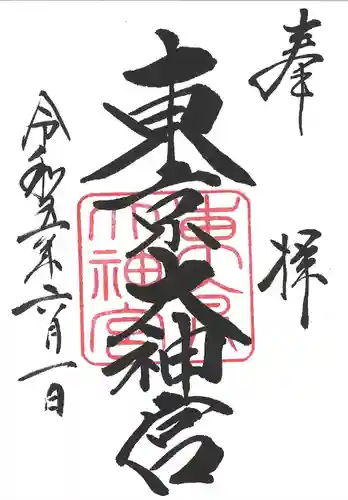 奉拝
東京大神宮
東京大神宮
令和五年六月一日